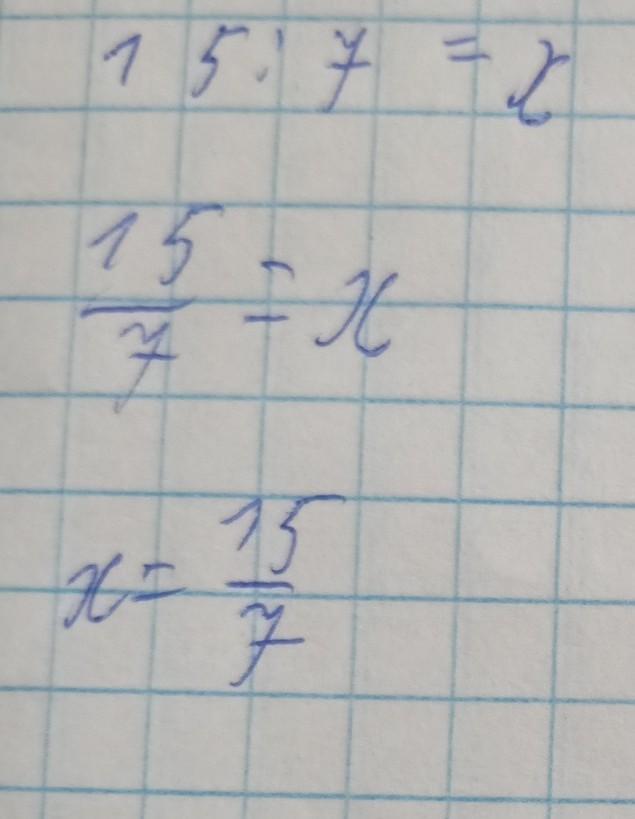 15:7 = x
15/7 = x
x = 15/7